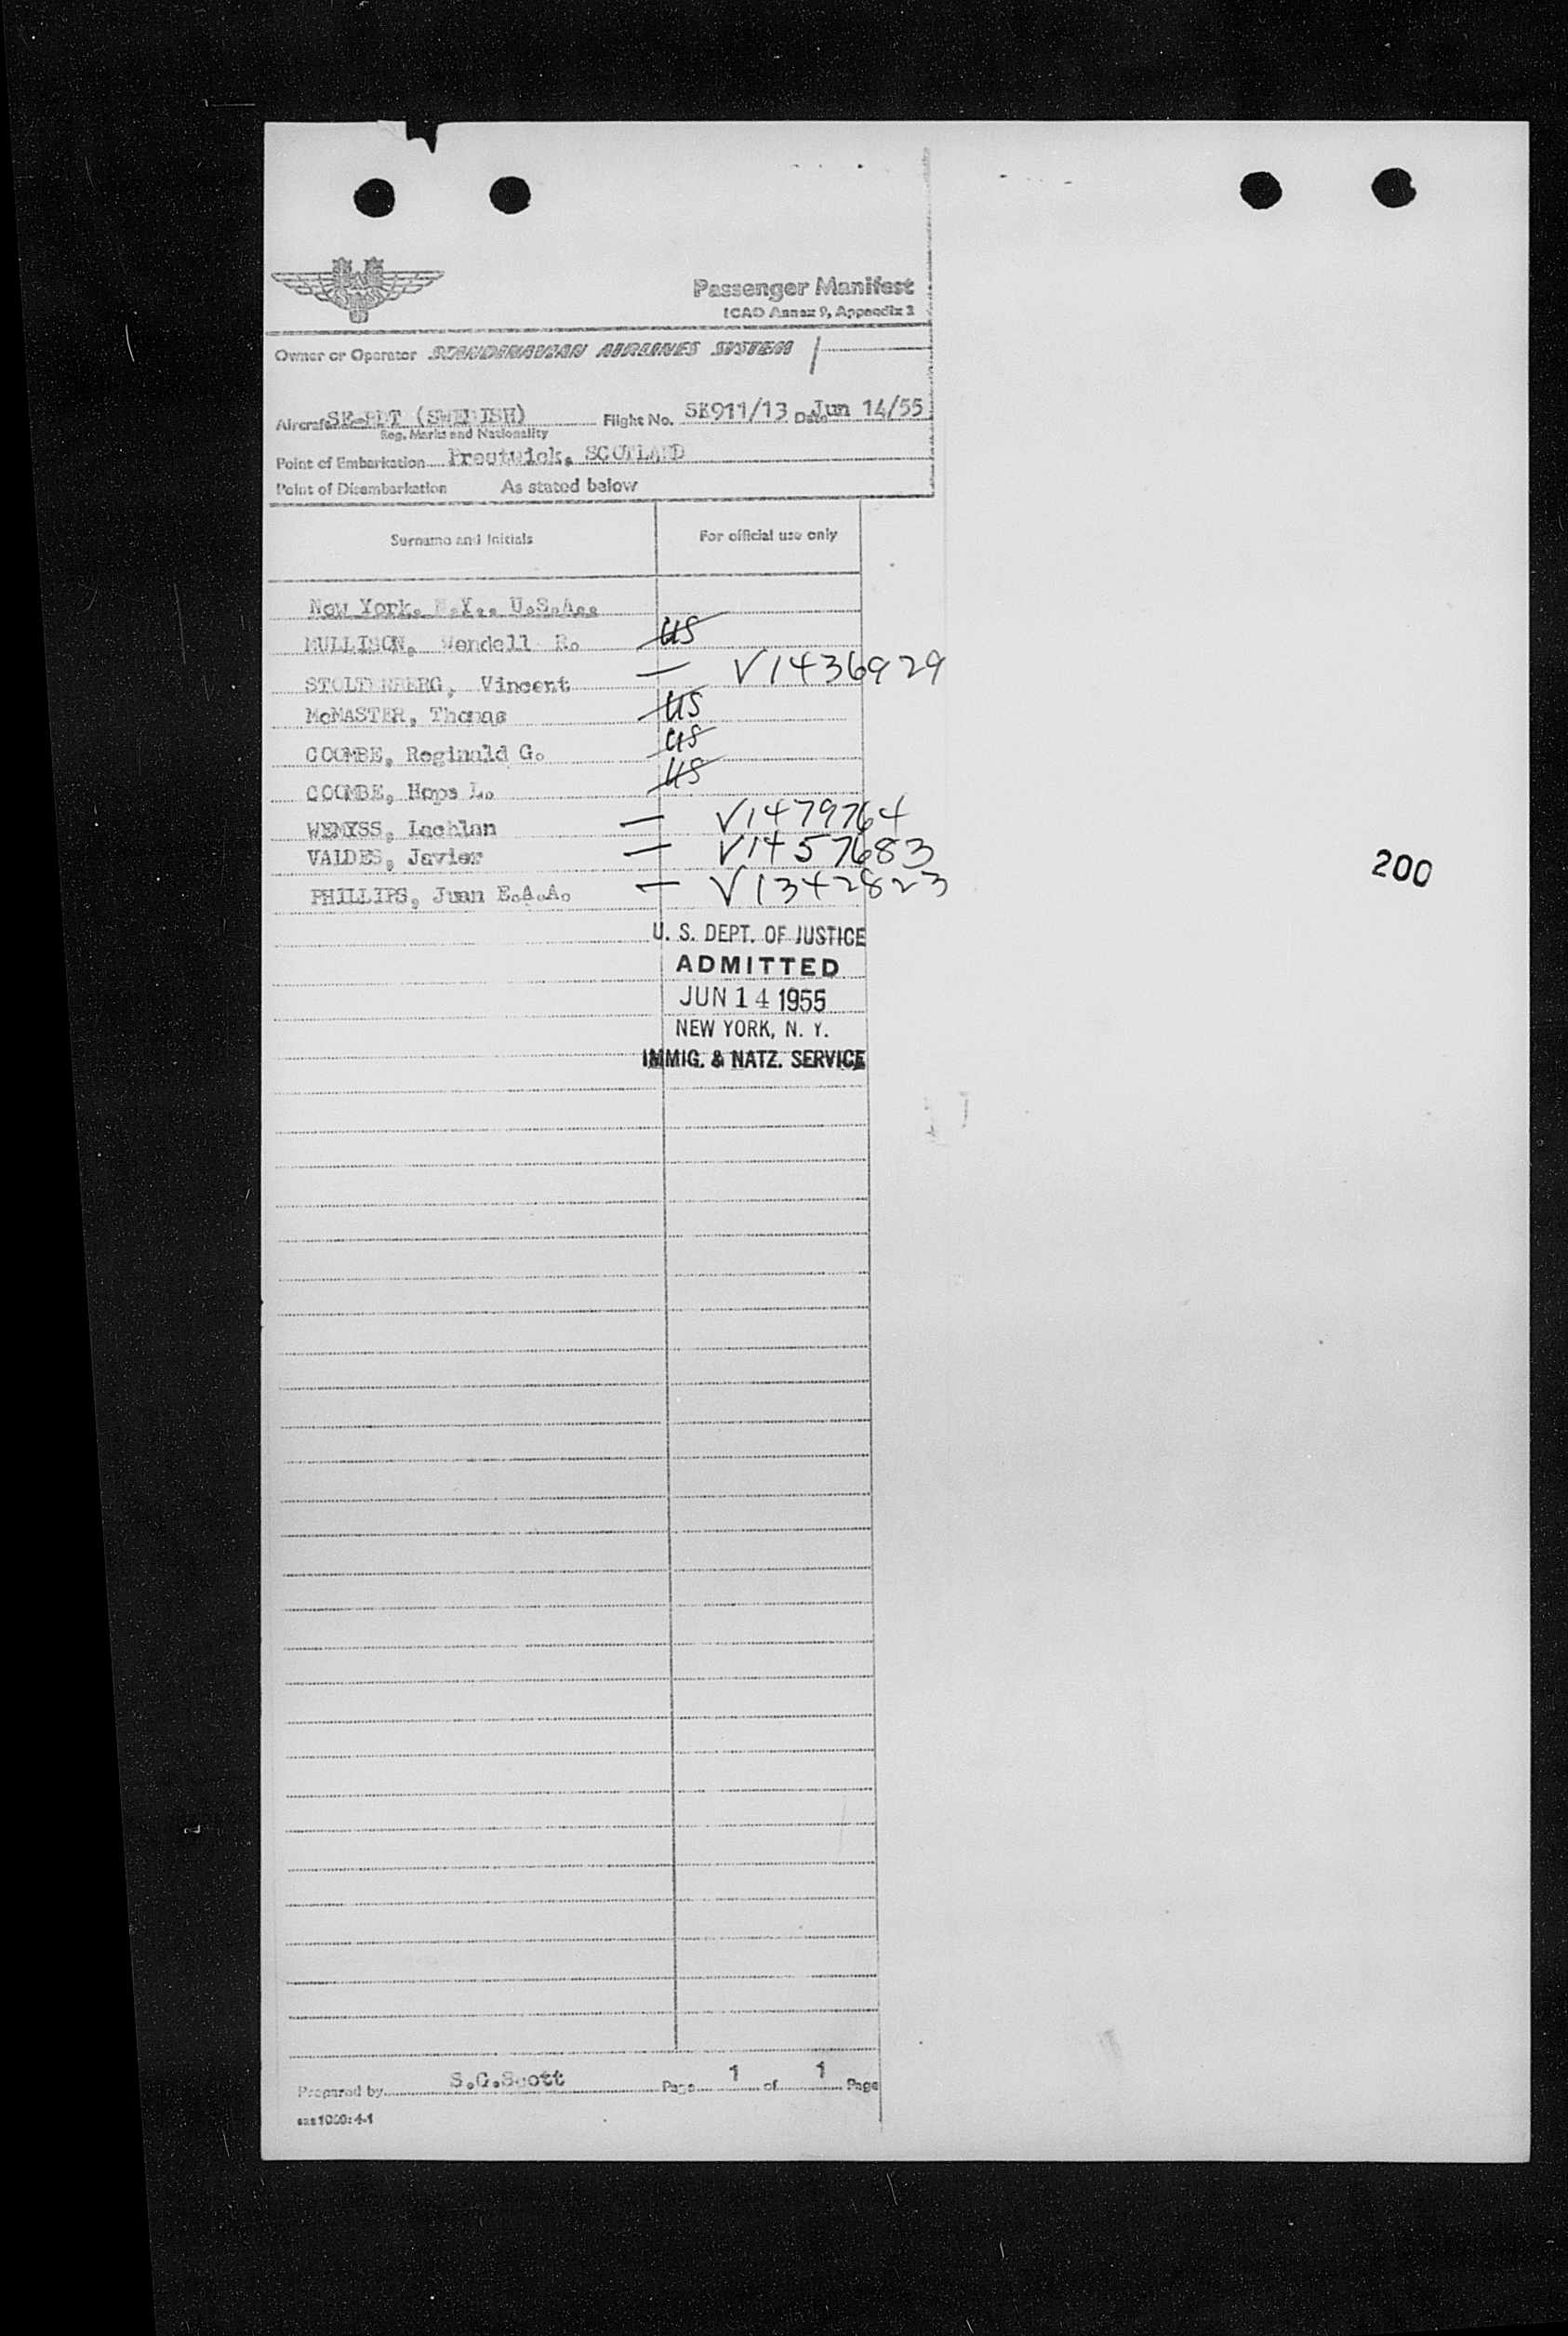 Passenger Manifest
ICAO Annex 9, Appendix 3
Owner or Operator SCANDINAVIAN AIRLINES SYSTEM
Aircraft (SWEDISH) Flight No. SK911/13 Date Jun 14/55
Reg. Marks and Nationality
Point of Embarkation Prestwick, SCOTLAND
Point of Disembarkation As stated below
Surname and Initials For official use only
New York, N.Y., U.S.A.,
MULLISON, Wendell R. US
STOLTERBERG, Vincent — V1436929
McMASTER, Thomas US
COOMBE, Reginald G. US
COOMBE, Hope L. US
WEMYSS, Lachlan — V1479764
VALDES, Javier — V1457683
200
PHILLIPS, Juan E.A.A. — V1342823
U. S. DEPT. OF JUSTICE
ADMITTED
JUN 14 1955
NEW YORK, N. Y.
IMMIG. & NATZ. SERVICE
Prepared by S.G.Scott Page 1 of 1 Page